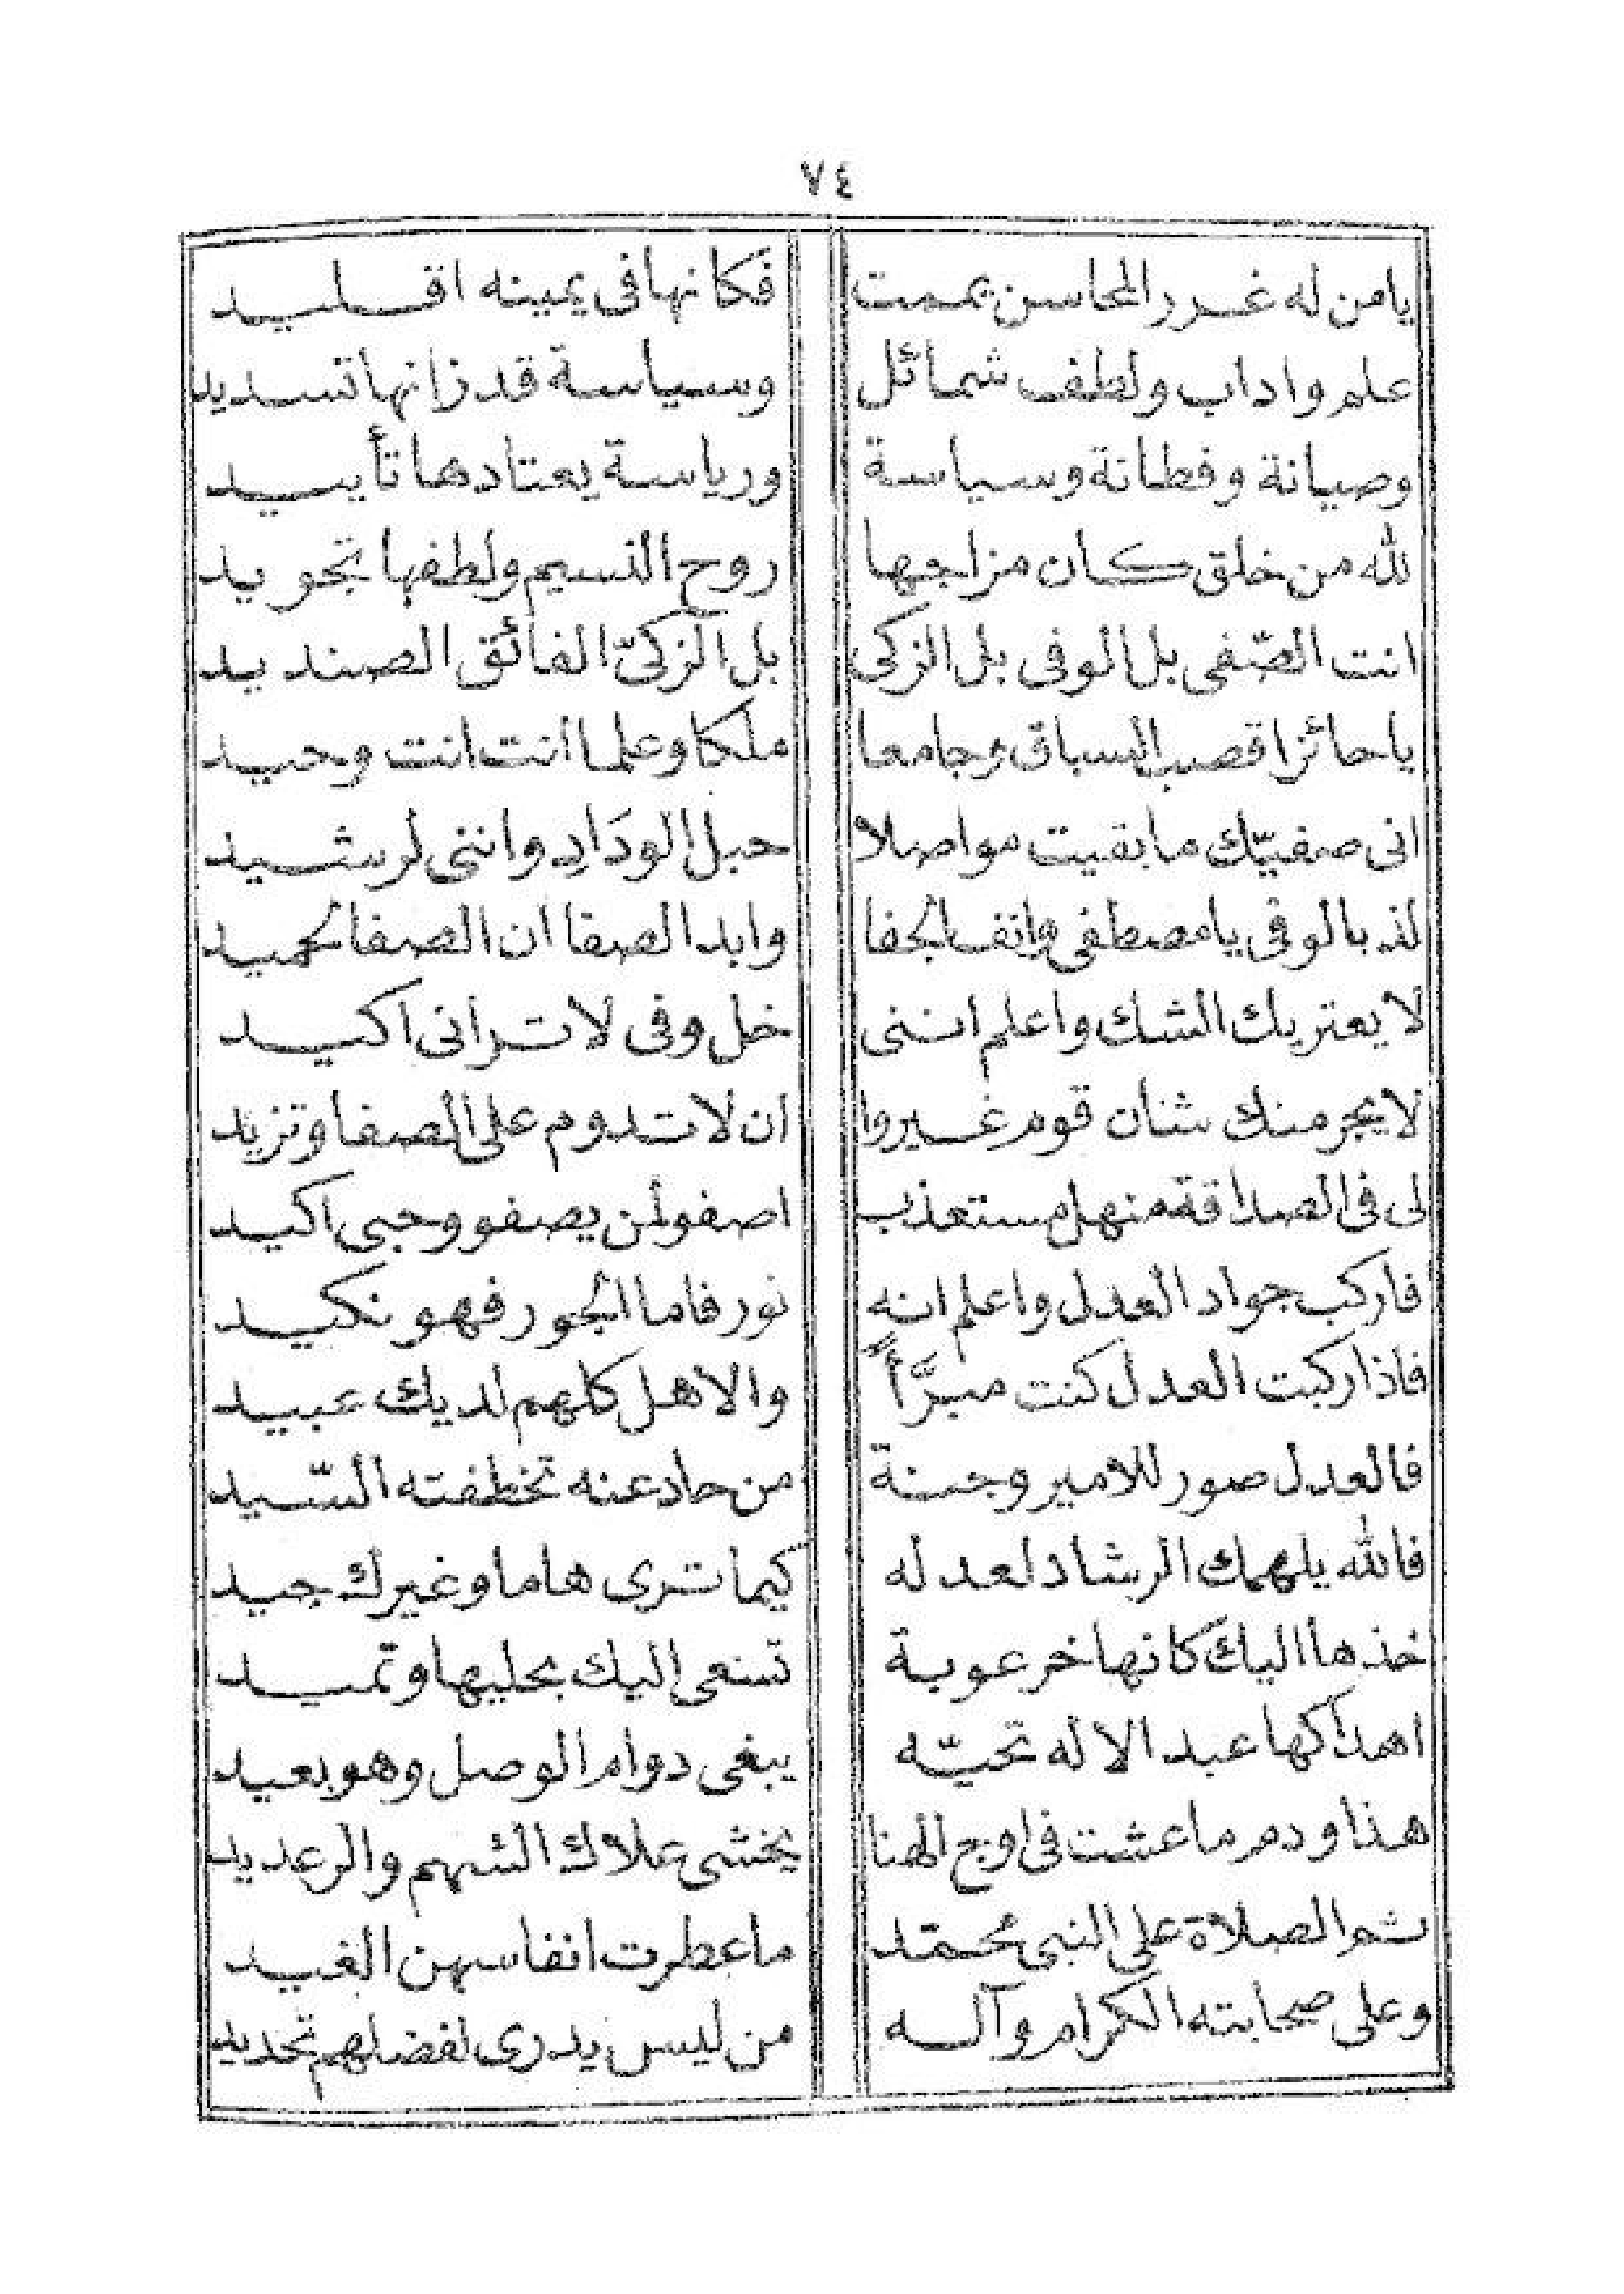 ٧٤
يامن له غرر المحاسن يممت فكانها فى يمينه اقليد
علم واداب ولطف شمائل وسياسة قد زانها تسديد
وصيانة وفطانة وسياسة ورياسة يعتادها تأييد
لله من خلق كان مزاجها روح النسيم ولطفها تجويد
انت الصّفى بل الوفى بل الزكى بل الزكىّ الفائق الصنديد
ياحائزا قصب السباق وجامعا ملكا وعلما انت انت وحيد
انى صفيّك مابقيت مواصلا حبل الودَادِ واننى لرشيد
لذ بالوفى يامصطفى وانف الجفا وابد الصفا ان الصفا لحميد
لا يعتريك الشك واعلم اننى خل وفى لاترانى اكيد
لا يجرمنك شنان قوم غيروا ان لا تدوم على الصفا وتزيد
لى فى الصداقة منهل مستعذب اصفو لمن يصفو وحبى اكيد
فاركب جواد العدل واعلم انه نور فاما الجور فهو نكيد
فاذا ركبت العدل كنت مبرَّأً والاهل كلهم لديك عبيد
فالعدل صور للامير وجنة من حاد عنه تخطفته السّيد
فالله يلهمك الرشاد لعدله كيما ترى هاما وغيرك جيد
خذها اليك كانها خرعوبة تسعى اليك بحليها وتميد
اهداكها عبد الاله تحيّه يبغى دوام الوصل وهو بعيد
هذا ودم ماعشت فى اوج الهنا يخشى علاك الشهم والرعديد
ثم الصلاة على النبى محمّد ماعطرت انفاسهن الغيد
وعلى صحابته الكرام وآله من ليس يدرى لفضلهم تحديد